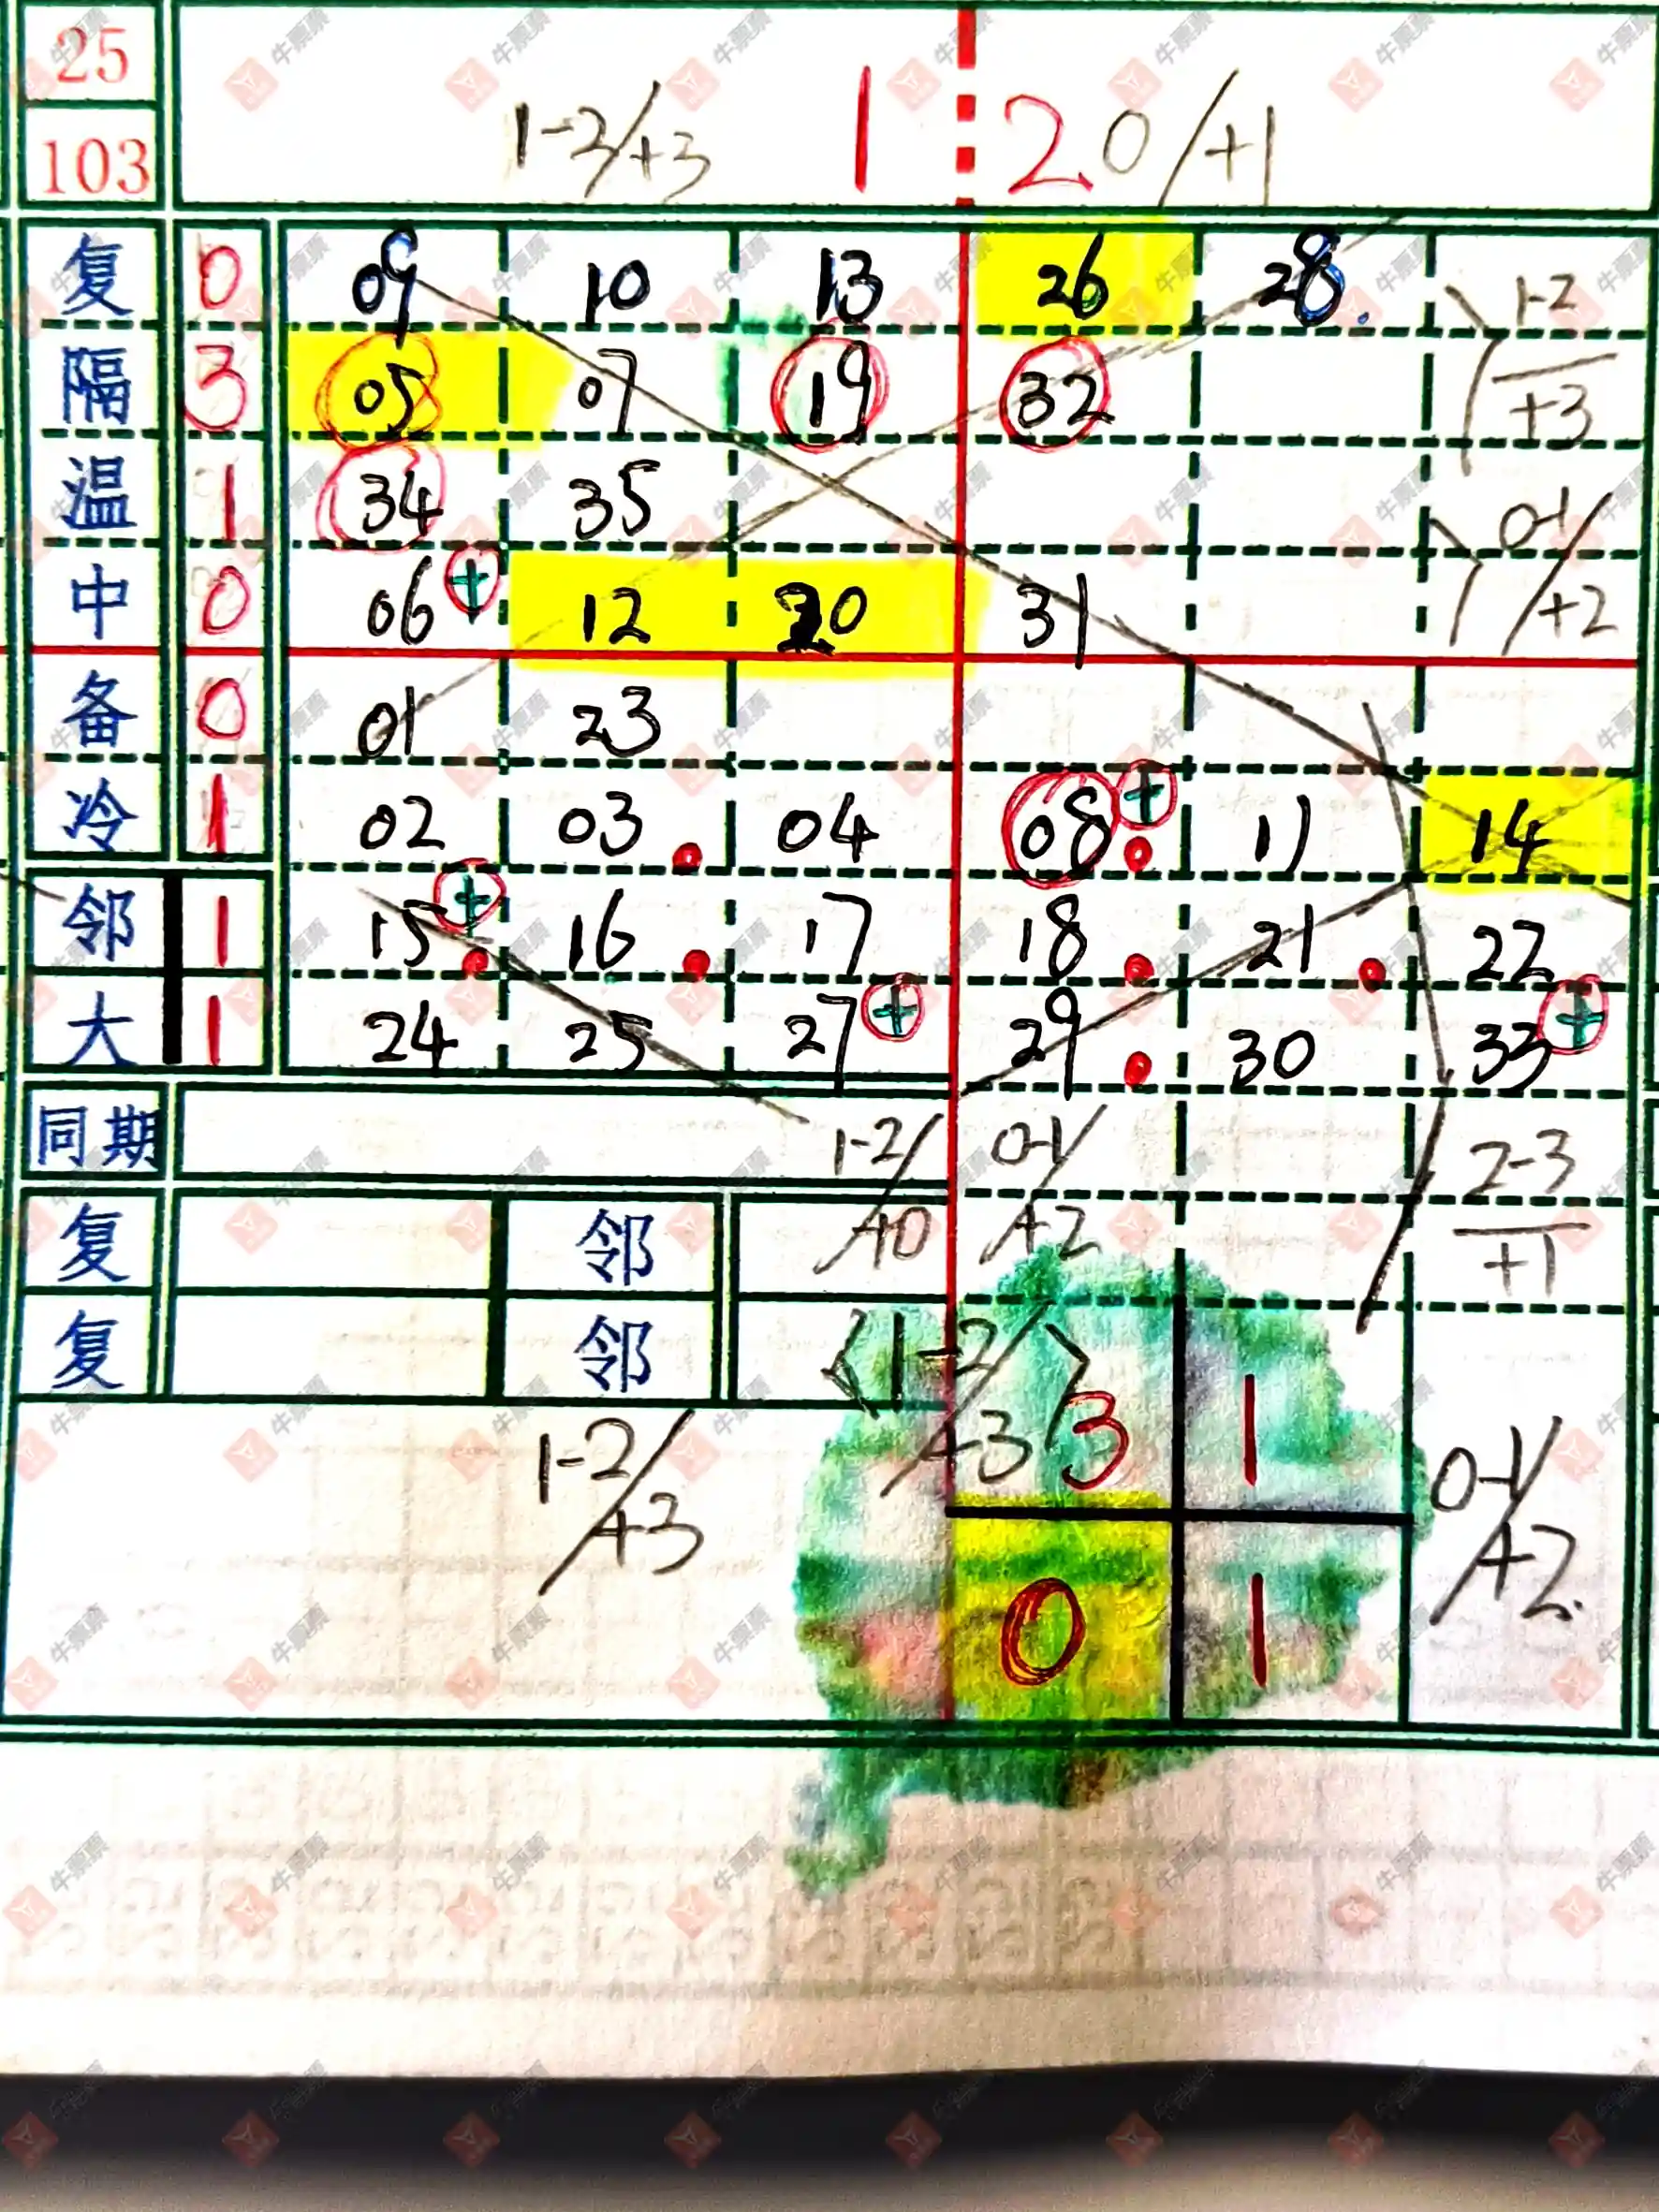 25
103
1-2/+3 1 2 0/+1
复 0 09 10 13 26 28. 1-2
隔 3 05 07 19 32 +3
温 1 34 35 0-1/
中 0 06 + 12 20 31 +2
备 0 01 23
冷 1 02 03 04 08 + 11 14
邻 1 15 + 16 17 18 21 22
大 1 24 25 27 + 29 30 33 +
同期 1-2/ 0-1/ 2-3
复 邻 +0 +2 +1
复 邻 <1-2/>
1-2/ +3 3 1 0-1/
+3 0 1 +2.
牛票票